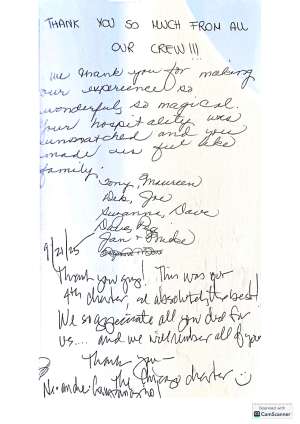 THANK YOU SO MUCH FROM ALL
OUR CREW!!!
We thank you for making
our experience so
wonderful, so magical.
Your hospitality was
unmatched and you
made us feel like
family.
Tony, Maureen
Deb, Joe
Suzanne, Dave
Dave, Peg
Jan +
9/21/25
Thank you guys! This was our
4th charter, & absolutely the best!
We so appreciate all you did for
us.... and we will remember all of you
Thank you —
The Chicago charter
Scanned with
CamScanner